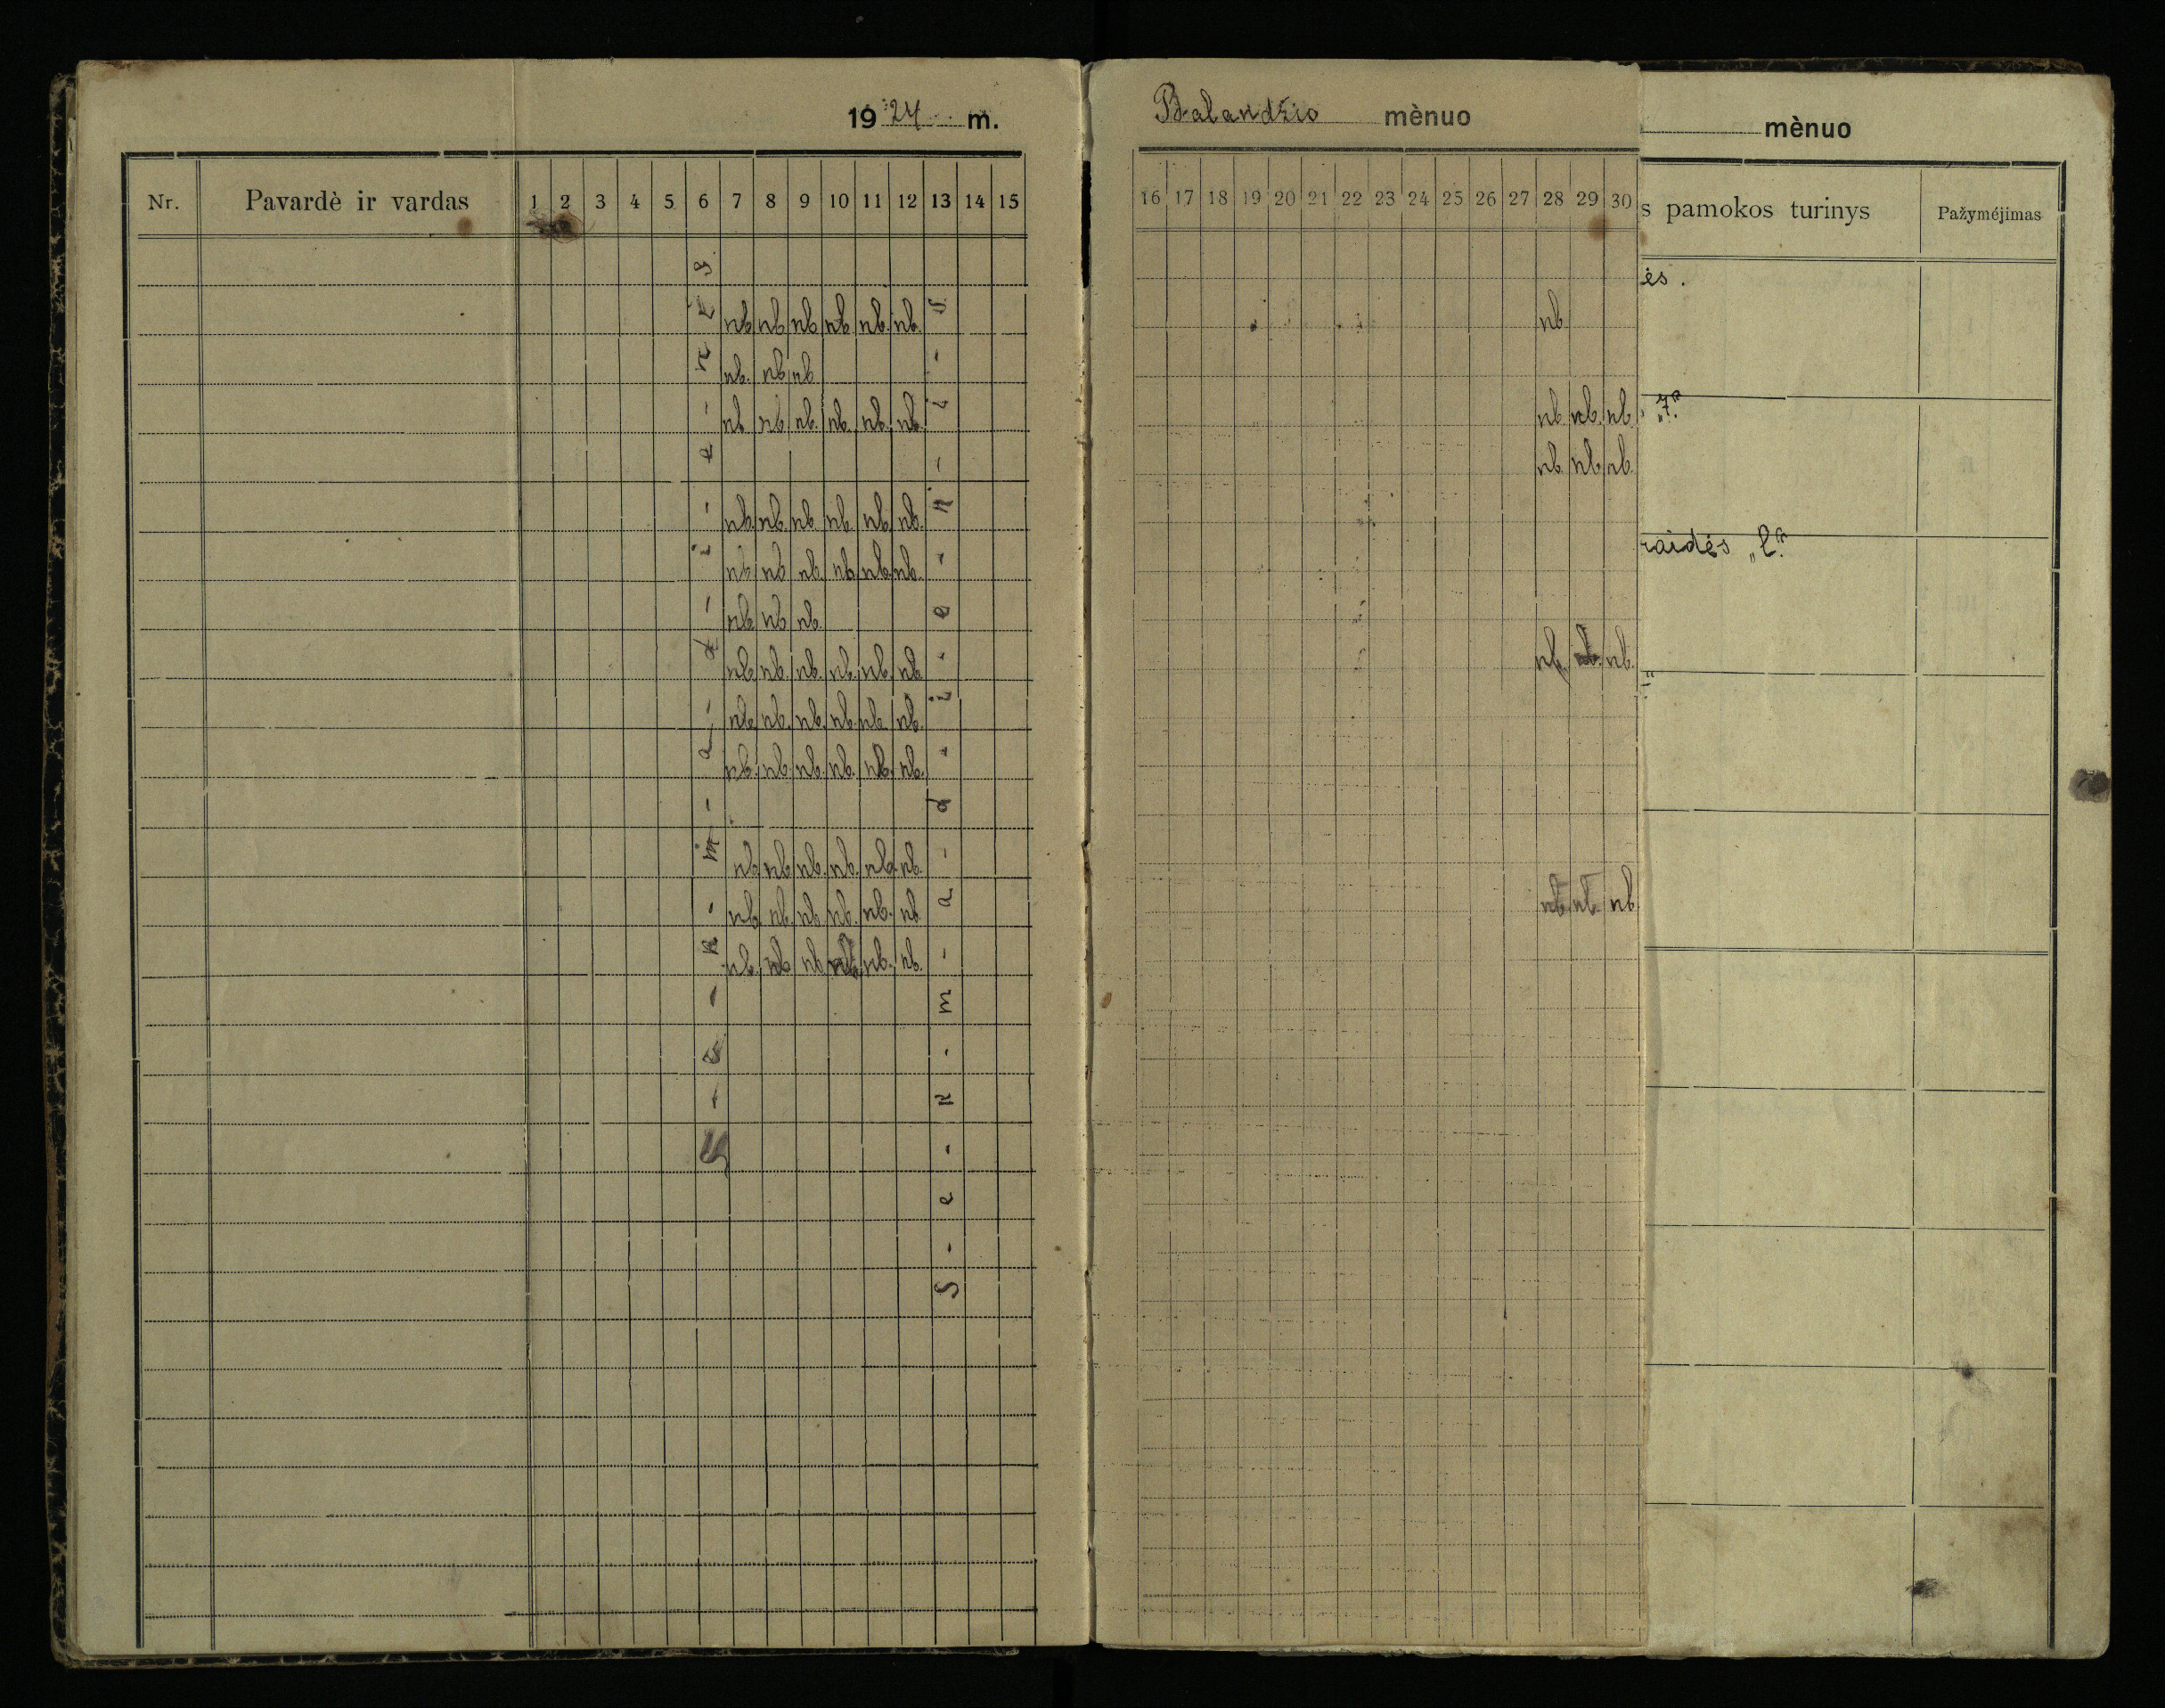 1924 m.
Nr. Pavardė ir vardas 1 2 3 4 5 6 7 8 9 10 11 12 13 14 15
nb. nb. nb. nb. nb. nb.
nb. nb. nb.
nb. nb. nb. nb. nb. nb.
nb. nb. nb. nb. nb. nb.
nb. nb. nb. nb. nb. nb.
nb. nb. nb.
nb. nb. nb. nb. nb. nb.
nb. nb. nb. nb. nb. nb.
nb. nb. nb. nb. nb. nb.
nb. nb. nb. nb. nb. nb.
nb. nb. nb. nb. nb. nb.
nb. nb. nb. nb. nb. nb.
S - e - k - m - a - d - i - e - n - i - s
Balandžio mėnuo
16 17 18 19 20 21 22 23 24 25 26 27 28 29 30
nb.
nb. nb. nb.
nb. nb. nb.
nb. nb. nb.
nb. nb. nb.
mėnuo
s pamokos turinys Pažyméjimas
ės.
raidės „l“